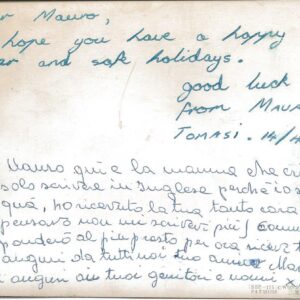 r Mauro,
hope you have a happy
er and safe holidays.
good luck
from MAUR
TOMASI. 14/4
Mauro qui è la mamma che
solo scrivere in Inglese perchè io
quà, ho ricevuto la tua tanto cara
pensavo non mi scrivevi più
al più presto per ora
auguri da tutti noi tuo amico Ma
auguri ai tuoi genitori e nonni